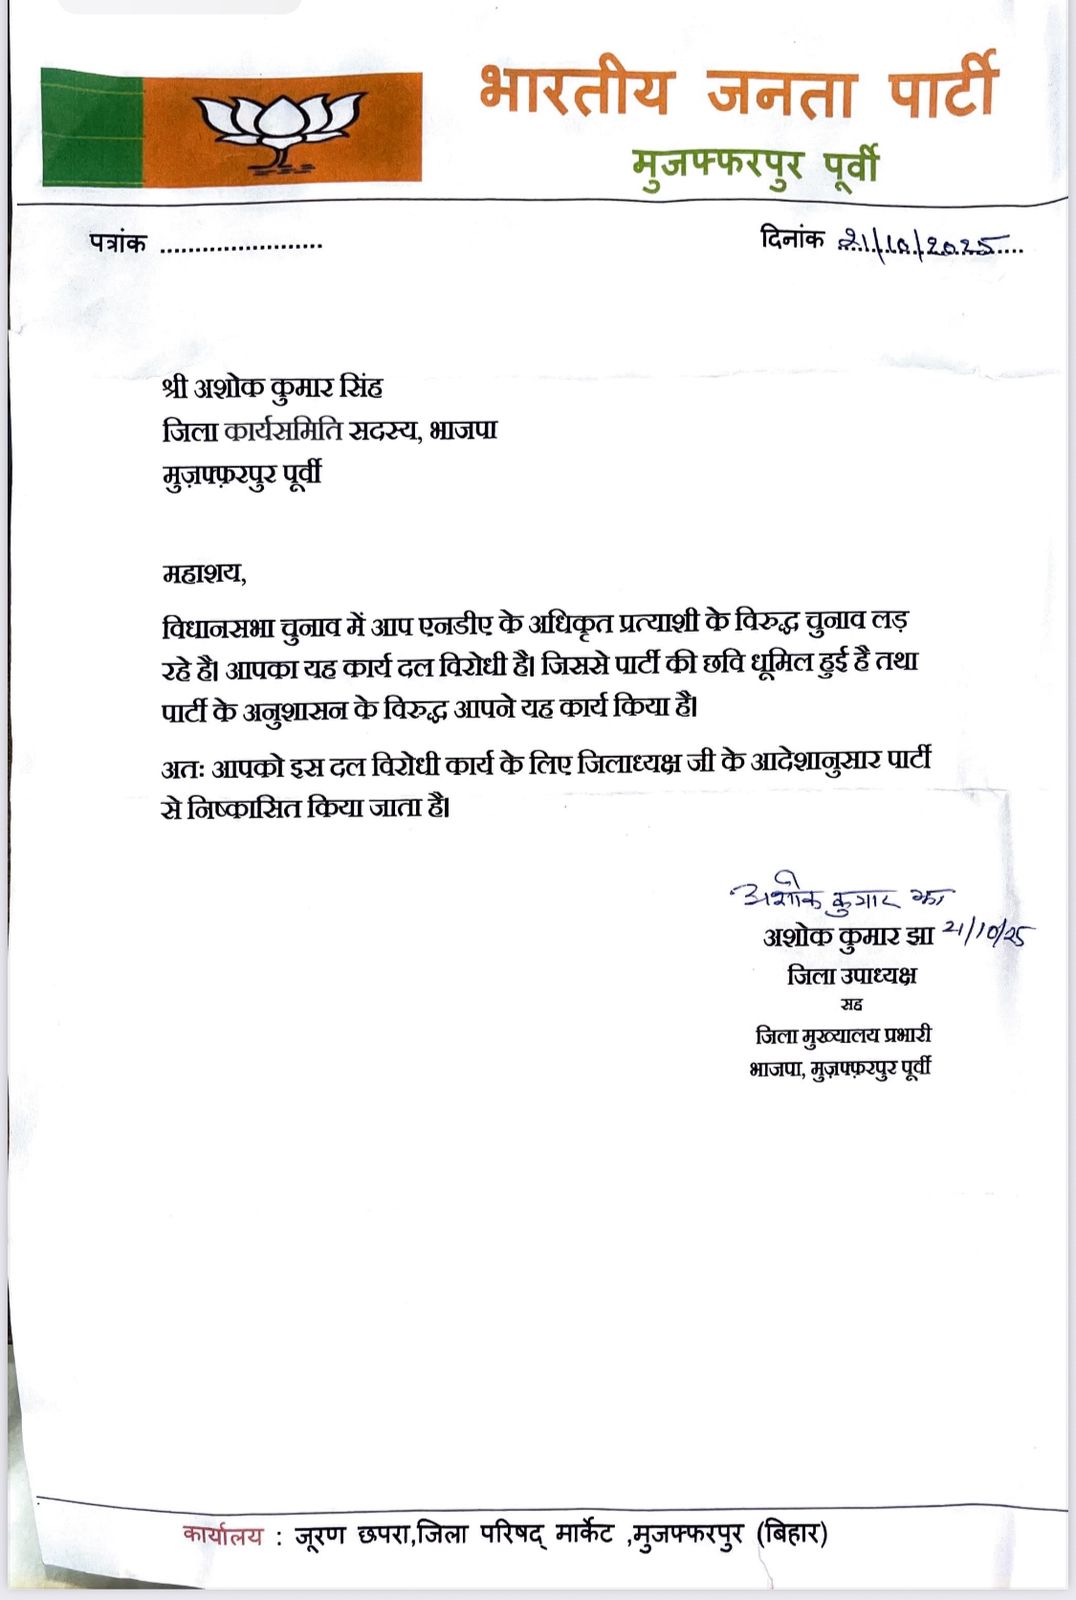 भारतीय जनता पार्टी
मुजफ्फरपुर पूर्वी
पत्रांक ....................... दिनांक 21/10/2025....
श्री अशोक कुमार सिंह
जिला कार्यसमिति सदस्य, भाजपा
मुज़फ्फ़रपुर पूर्वी
महाशय,
विधानसभा चुनाव में आप एनडीए के अधिकृत प्रत्याशी के विरुद्ध चुनाव लड़
रहे है। आपका यह कार्य दल विरोधी है। जिससे पार्टी की छवि धूमिल हुई है तथा
पार्टी के अनुशासन के विरुद्ध आपने यह कार्य किया है।
अतः आपको इस दल विरोधी कार्य के लिए जिलाध्यक्ष जी के आदेशानुसार पार्टी
से निष्कासित किया जाता है।
अशोक कुमार झा
अशोक कुमार झा 21/10/25
जिला उपाध्यक्ष
सह
जिला मुख्यालय प्रभारी
भाजपा, मुज़फ्फ़रपुर पूर्वी
कार्यालय : जूरण छपरा,जिला परिषद् मार्केट ,मुजफ्फरपुर (बिहार)